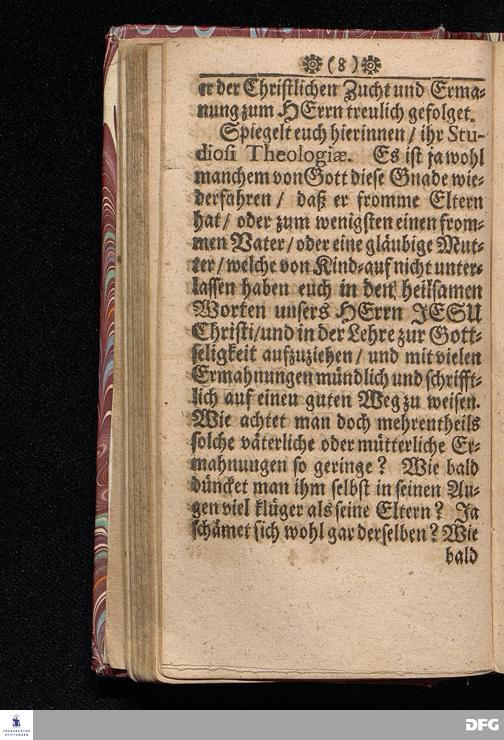 (8)
er der Christlichen Zucht und Erma-
nung zum HErrn treulich gefolget.
Spiegelt euch hierinnen / ihr Stu-
diosi Theologiæ. Es ist ja wohl
manchem von Gott diese Gnade wie-
derfahren / daß er fromme Eltern
hat / oder zum wenigsten einen from-
men Vater / oder eine gläubige Mut-
ter / welche von Kind-auf nicht unter-
lassen haben euch in den heilsamen
Worten unsers HErrn JESU
Christi / und in der Lehre zur Gott-
seligkeit aufzuziehen / und mit vielen
Ermahnungen mündlich und schrifft-
lich auf einen guten Weg zu weisen.
Wie achtet man doch mehrentheils
solche väterliche oder mütterliche Er-
mahnungen so geringe? Wie bald
düncket man ihm selbst in seinen Au-
gen viel klüger als seine Eltern? Ja
schämet sich wohl gar derselben? Wie
bald
FRANCKESCHE
STIFTUNGEN
DFG